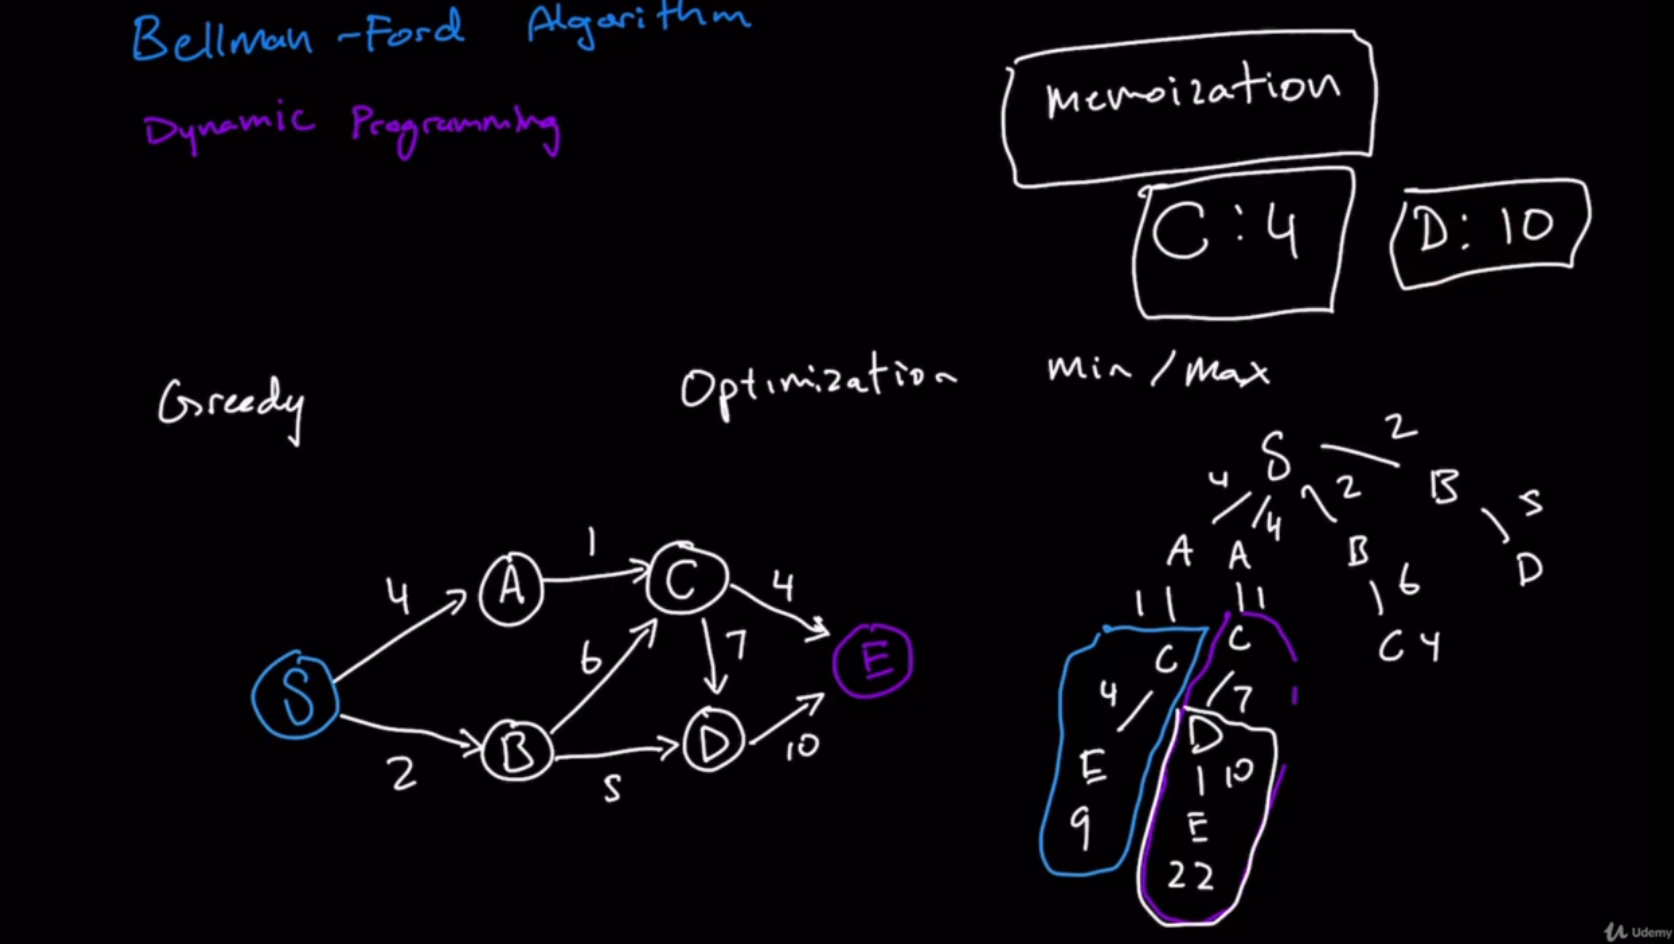 Bellman-Ford Algorithm
Dynamic Programming
Memoization
C:4
D:10
Greedy
Optimization min/max
4
A
1
C
4
S
6
7
E
2
B
5
D
10
S
2
4
4
2
B
5
A
A
B
D
1
1
6
C
C
C 4
4
7
E
D
10
9
E
22
Udemy